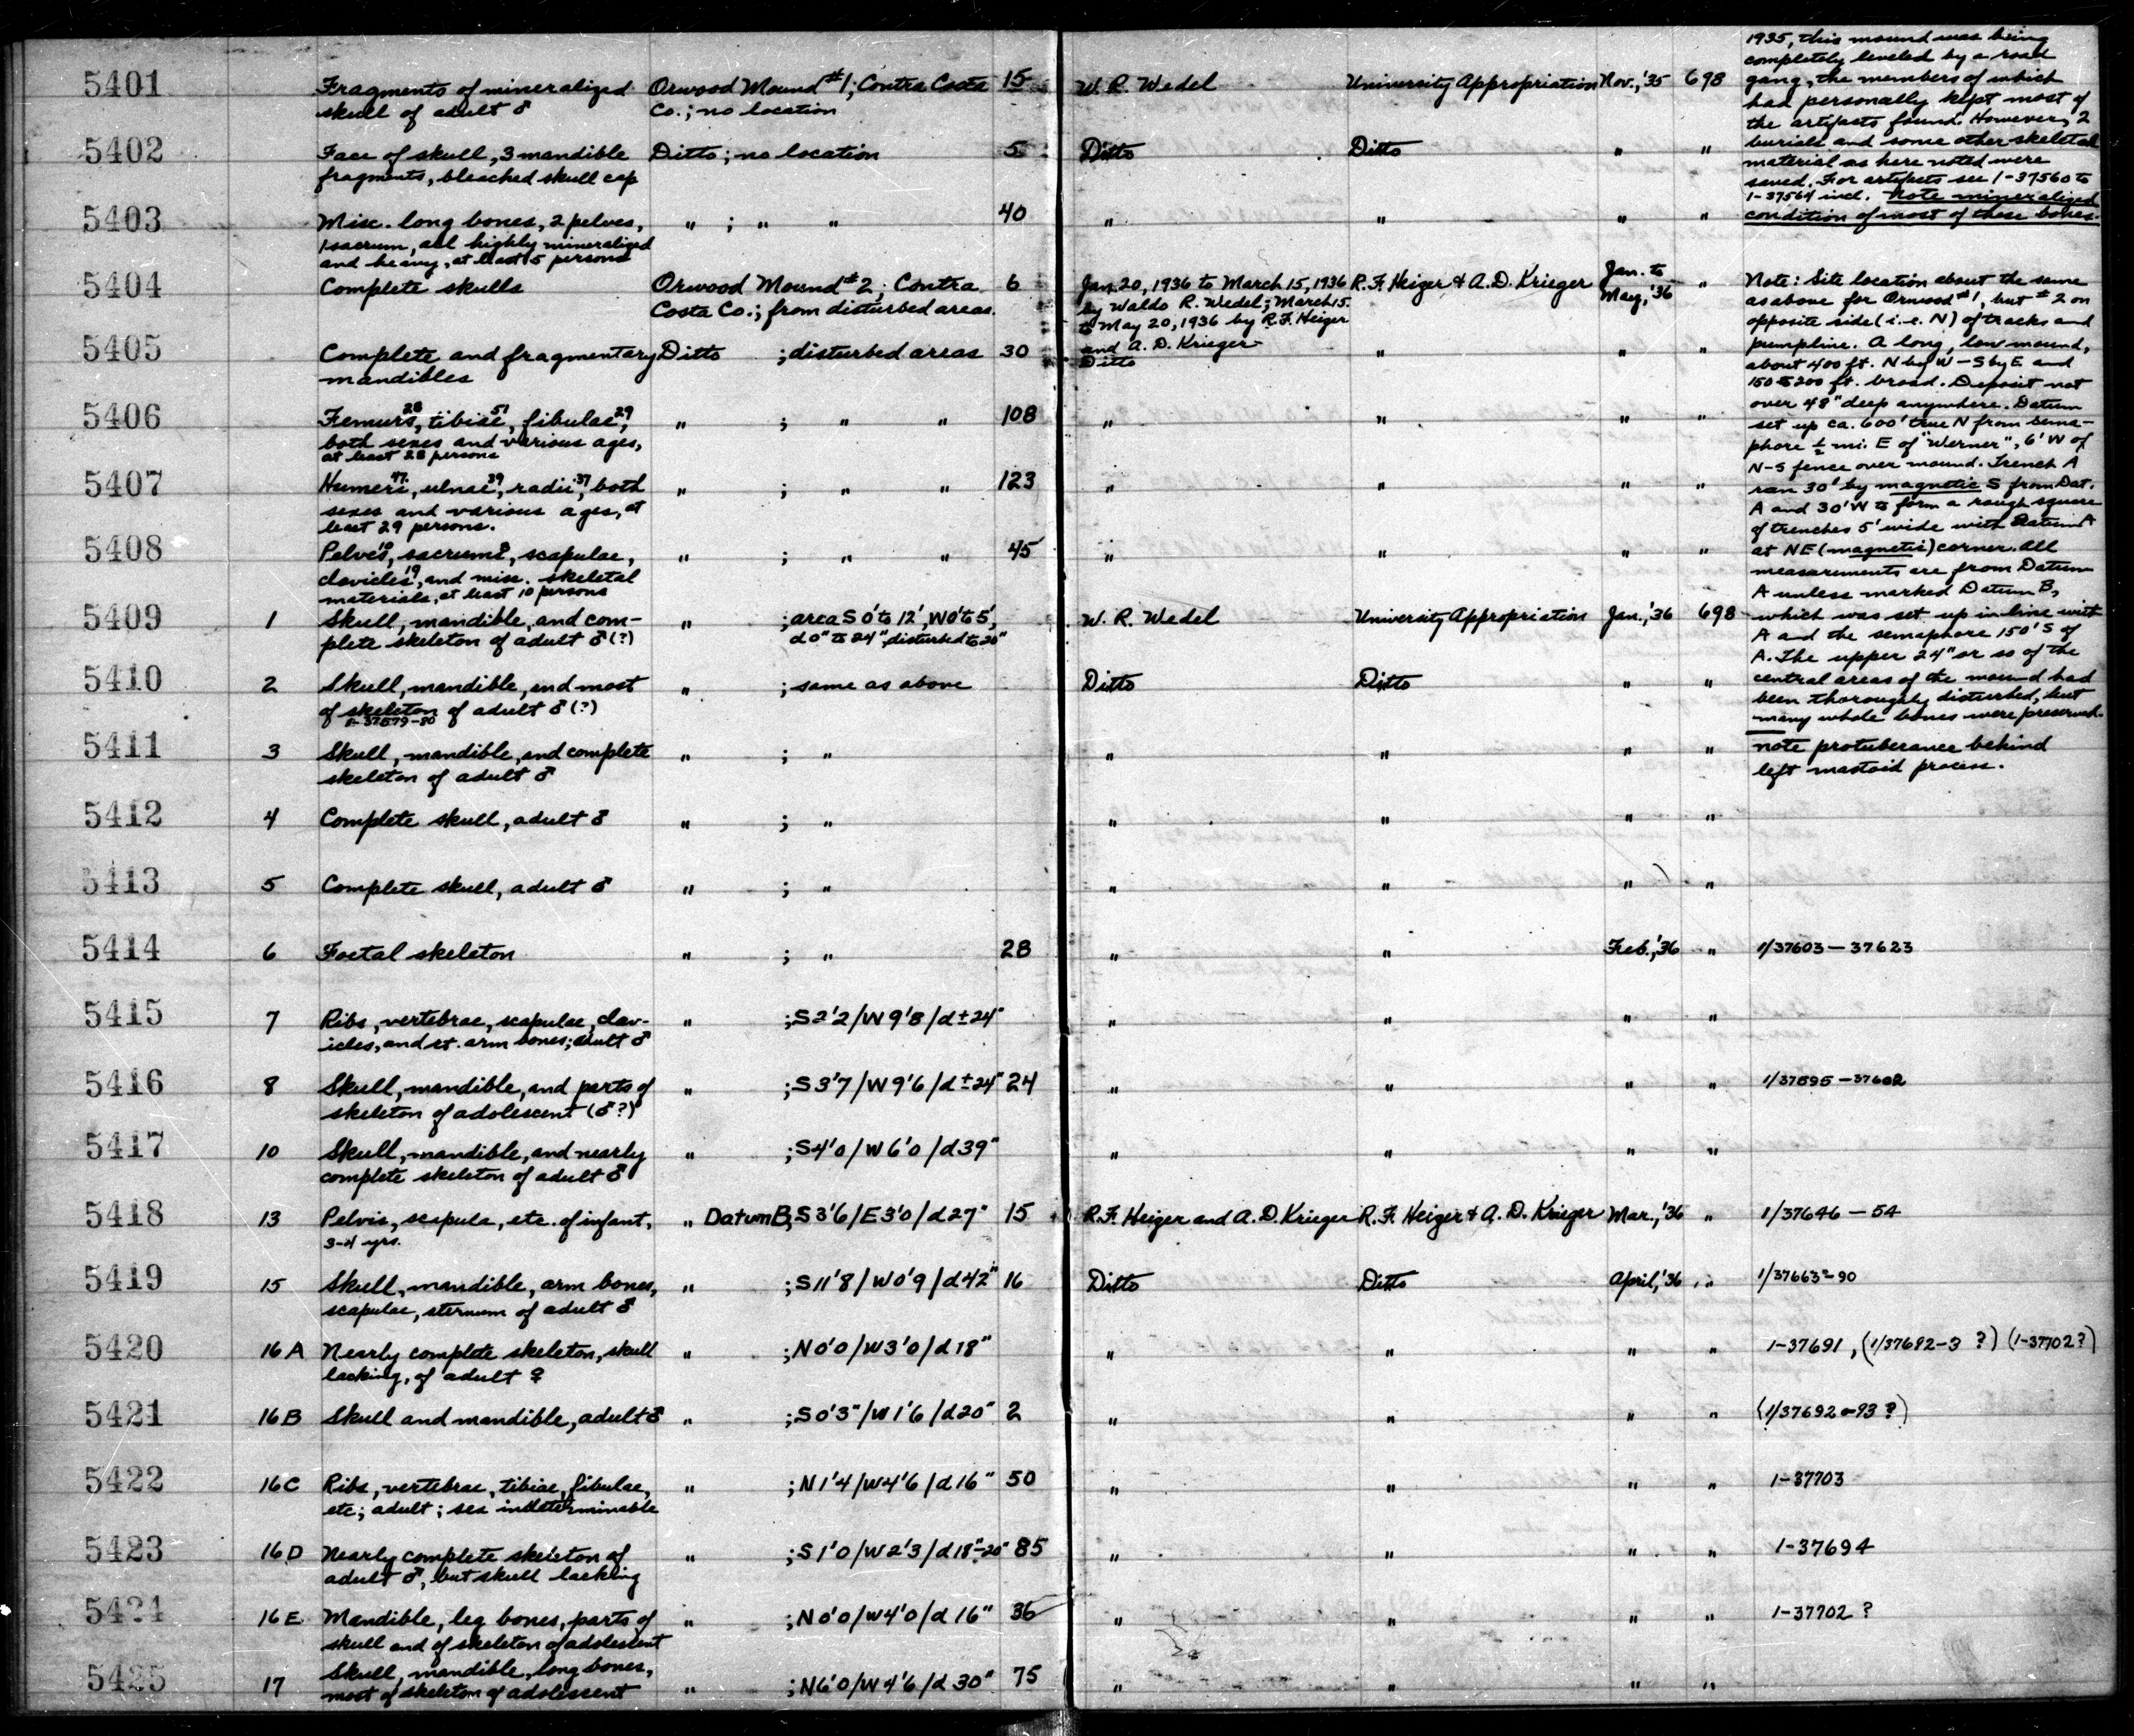 5401 Fragments of mineralized Orwood Mound #1; Contra Costa 15 W. R. Wedel University Appropriation Nov., '35 698
skull of adult ♂ Co.; no location
5402 Face of skull, 3 mandible Ditto; no location 5 Ditto Ditto " "
fragments, bleached skull cap
5403 Misc. long bones, 2 pelves, " ; " " 40 " " " "
1 sacrum, all highly mineralized
and heavy, at least 5 persons
1935, this mound was being
completely leveled by a road
gang, the members of which
had personally kept most of
the artifacts found. However, 2
burials and some other skeletal
material as here noted were
saved. For artifacts see 1-37560 to
1-37564 incl. Note mineralized
condition of most of these bones.
5404 Complete skulls Orwood Mound #2; Contra 6 Jan. 20, 1936 to March 15, 1936 R. F. Heizer & A. D. Krieger Jan. to "
Costa Co.; from disturbed areas. by Waldo R. Wedel; March 15 May, '36
to May 20, 1936 by R. F. Heizer
and A. D. Krieger
5405 Complete and fragmentary Ditto ; disturbed areas 30 Ditto " " "
mandibles
5406 Femurs 28, tibiae 51, fibulae 29, " ; " " 108 " " " "
both sexes and various ages,
at least 28 persons
5407 Humeri 47, ulnae 39, radii 37, both " ; " " 123 " " " "
sexes and various ages, at
least 29 persons.
5408 Pelves, sacrums, scapulae, " ; " " 45 " " " "
clavicles 19, and misc. skeletal
materials, at least 10 persons
5409 1 Skull, mandible, and com- " ; area S 0' to 12', W 0' to 5', W. R. Wedel University Appropriation Jan., '36 698
plete skeleton of adult ♂ (?) d 0" to 24", disturbed to 20"
5410 2 Skull, mandible, and most " ; same as above Ditto Ditto " "
of skeleton of adult ♂ (?)
1-37579-80
Note: Site location about the same
as above for Orwood #1, but #2 on
opposite side (i.e. N) of tracks and
pumpline. A long, low mound,
about 400 ft. N by W - S by E and
150 to 200 ft. broad. Deposit not
over 48" deep anywhere. Datum
set up ca. 600' true N from sema-
phore ½ mi. E of "Werner", 6' W of
N-S fence over mound. Trench A
ran 30' by magnetic S from Dat.
A and 30' W to form a rough square
of trenches 5' wide with Datum A
at NE (magnetic) corner. All
measurements are from Datum
A unless marked Datum B,
which was set up in line with
A and the semaphore 150' S of
A. The upper 24" or so of the
central areas of the mound had
been thoroughly disturbed, but
many whole bones were preserved.
5411 3 Skull, mandible, and complete " ; " " " " " note protuberance behind
skeleton of adult ♂ left mastoid process.
5412 4 Complete skull, adult ♂ " ; " " " " "
5413 5 Complete skull, adult ♂ " ; " " " " "
5414 6 Foetal skeleton " ; " 28 " " Feb., '36 " 1/37603 - 37623
5415 7 Ribs, vertebrae, scapulae, clav- " ; S 2'2 / W 9'8 / d ± 24" " " " "
icles, and rt. arm bones; adult ♂
5416 8 Skull, mandible, and parts of " ; S 3'7 / W 9'6 / d ± 24" 24 " " " " 1/37595 - 37602
skeleton of adolescent (♂?)
5417 10 Skull, mandible, and nearly " ; S 4'0 / W 6'0 / d 39" " " " "
complete skeleton of adult ♂
5418 13 Pelvis, scapula, etc. of infant, " Datum B; S 3'6 / E 3'0 / d 27" 15 R. F. Heizer and A. D. Krieger R. F. Heizer & A. D. Krieger Mar., '36 " 1/37646 - 54
3-4 yrs.
5419 15 Skull, mandible, arm bones, " ; S 11'8 / W 0'9 / d 42" 16 Ditto Ditto April, '36 " 1/37663-90
scapulae, sternum of adult ♂
5420 16 A Nearly complete skeleton, skull " ; N 0'0 / W 3'0 / d 18" " " " " 1-37691, (1/37692-3 ?) (1-37702?)
lacking, of adult ♀
5421 16 B Skull and mandible, adult ♂ " ; S 0'3" / W 1'6 / d 20" 2 " " " " (1/37692-93 ?)
5422 16 C Ribs, vertebrae, tibiae, fibulae, " ; N 1'4 / W 4'6 / d 16" 50 " " " " 1-37703
etc; adult; sex indeterminable
5423 16 D Nearly complete skeleton of " ; S 1'0 / W 2'3 / d 18"-20" 85 " " " " 1-37694
adult ♂, but skull lacking
5424 16 E Mandible, leg bones, parts of " ; N 0'0 / W 4'0 / d 16" 36 " " " " 1-37702 ?
skull and of skeleton of adolescent
5425 17 Skull, mandible, long bones, " ; N 6'0 / W 4'6 / d 30" 75 " " " "
most of skeleton of adolescent